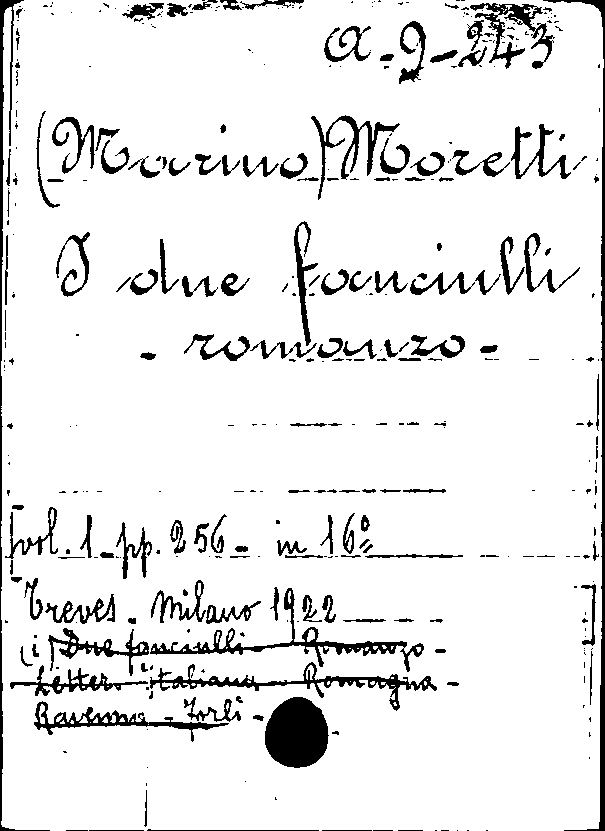 a-9-243
(Marino) Moretti
I due fanciulli
- romanzo -
vol. 1 - pp. 256 - in 16º
Treves - Milano 1922
(i) Due fanciulli - Romanzo -
Letter. italiana - Romagna -
Ravenna - Forlì -